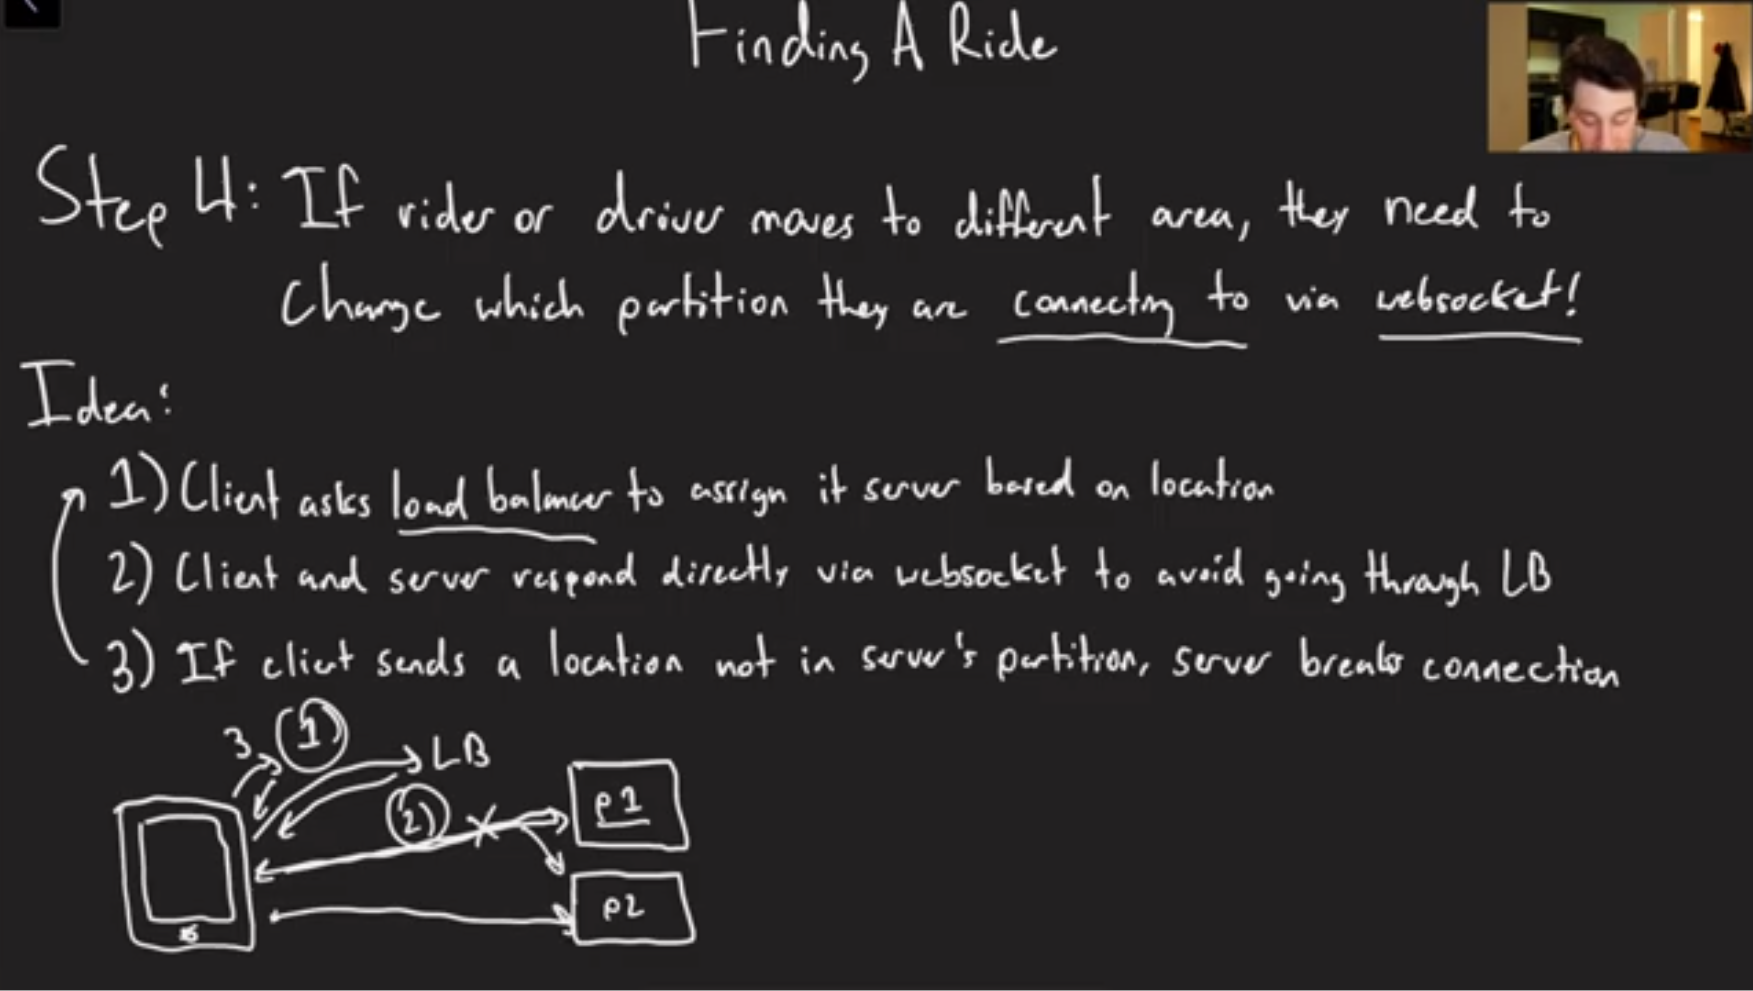 Finding A Ride
Step 4: If rider or driver moves to different area, they need to
change which partition they are connecting to via websocket!
Idea:
1) Client asks load balancer to assign it server based on location
2) Client and server respond directly via websocket to avoid going through LB
3) If client sends a location not in server's partition, server breaks connection
3 1 LB
2 P1
P2